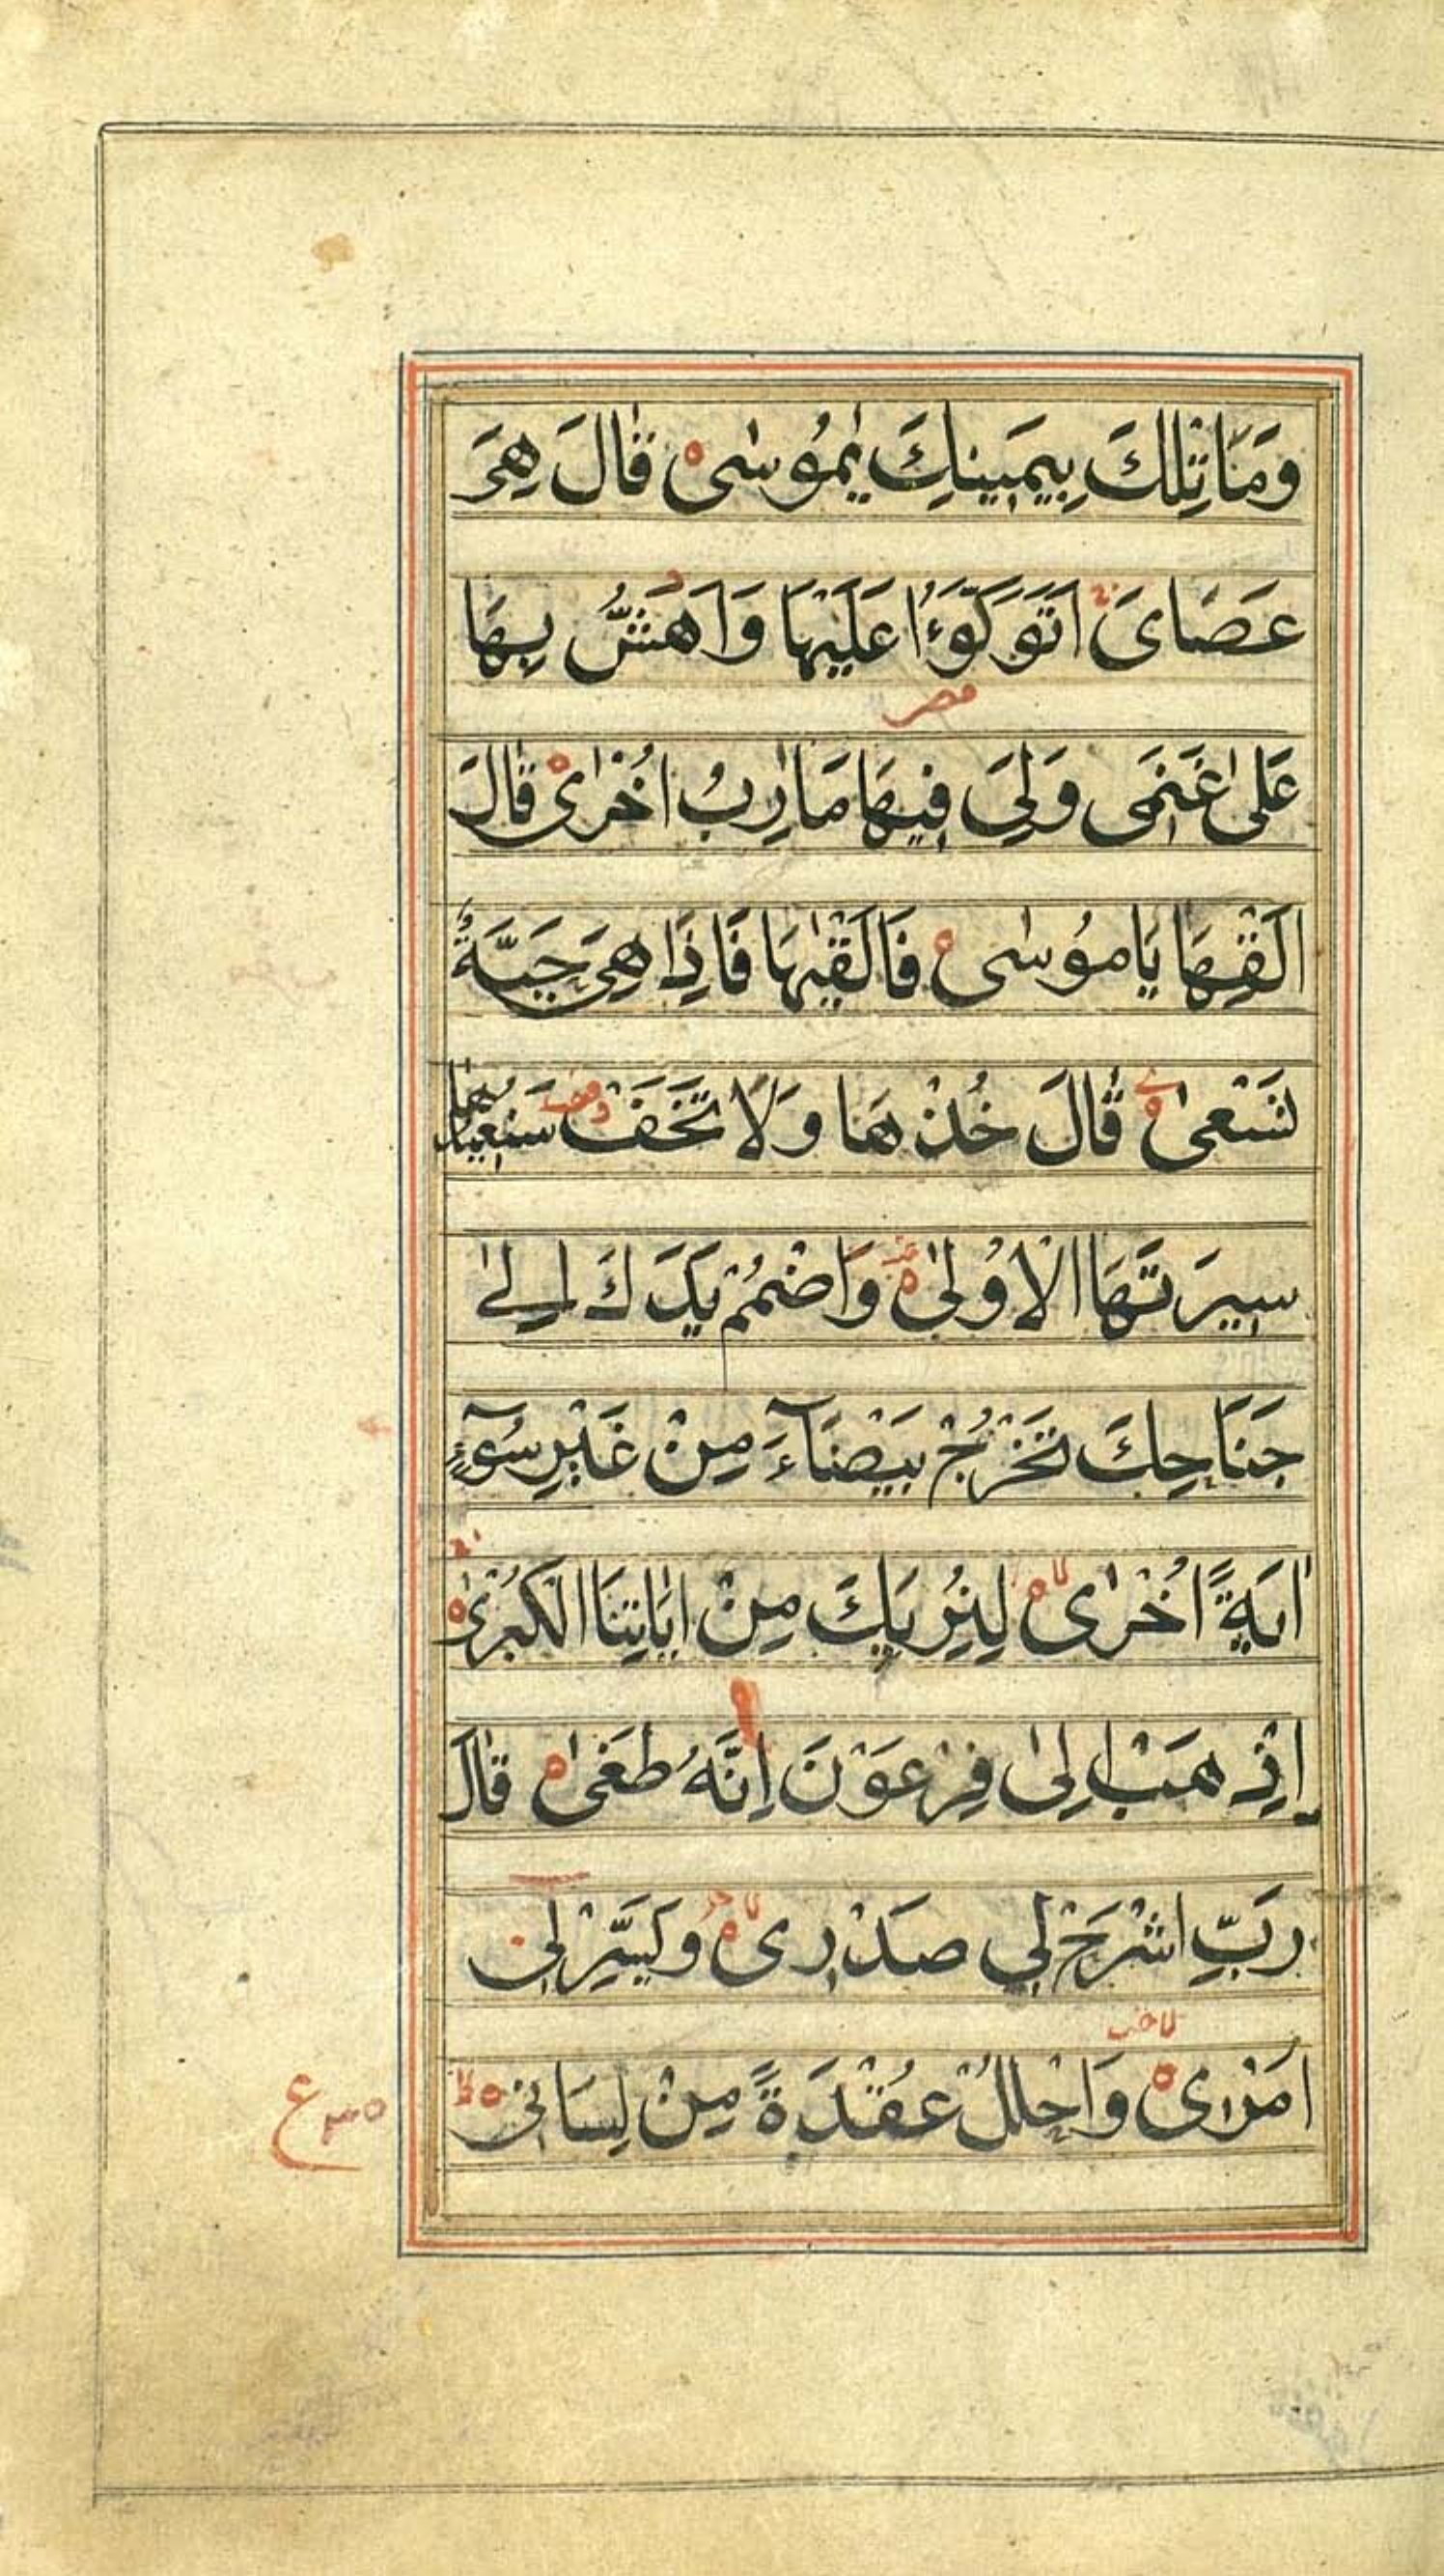 وَمَا تِلْكَ بِيَمِينِكَ يٰمُوسٰى قٰالَ هِىَ
عَصَاىَ اَتَوَكَّوءُا عَلَيْهَا وَاَهُشُّ بِهَا
عَلٰى غَنَمِى وَلِىَ فِيهَا مَاٰرِبُ اُخْرٰى قٰالَ
اَلْقِهَا يَا مُوسٰى فَاَلْقٰيهَا فَاِذَا هِىَ حَيَّةٌ
تَسْعٰى قٰالَ خُذْهَا وَلَا تَخَفْ سَنُعِيدُهَا
سِيرَتَهَا الْاُولٰى وَاضْمُمْ يَدَكَ اِلٰى
جَنَاحِكَ تَخْرُجْ بَيْضَآءَ مِنْ غَيْرِ سُوٓءٍ
اٰيَةً اُخْرٰى لِنُرِيَكَ مِنْ اٰيَاتِنَا الْكُبْرٰى
اِذْهَبْ اِلٰى فِرْعَوْنَ اِنَّهُ طَغٰى قٰالَ
رَبِّ اشْرَحْ لِي صَدْرِى وَيَسِّرْ لِى
اَمْرِى وَاحْلُلْ عُقْدَةً مِنْ لِسَانِى
ع